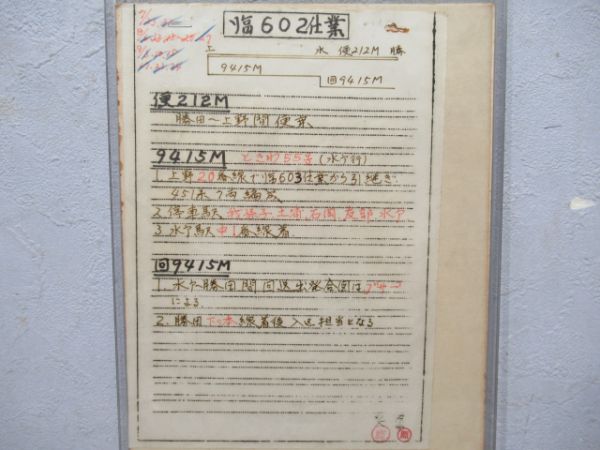 臨602仕業
上 水 便212M 勝
9415M
回9415M
便212M
勝田〜上野間便乗
9415M ときわ55号(水戸行)
1. 上野20番線で臨603仕業から引継ぎ
451系7両編成
2. 停車駅 我孫子 土浦 石岡 友部 水戸
3. 水戸駅中1番線着
回9415M
1. 水戸〜勝田間回送出発合図はブザー
による
2. 勝田下り本線着後入区担当となる